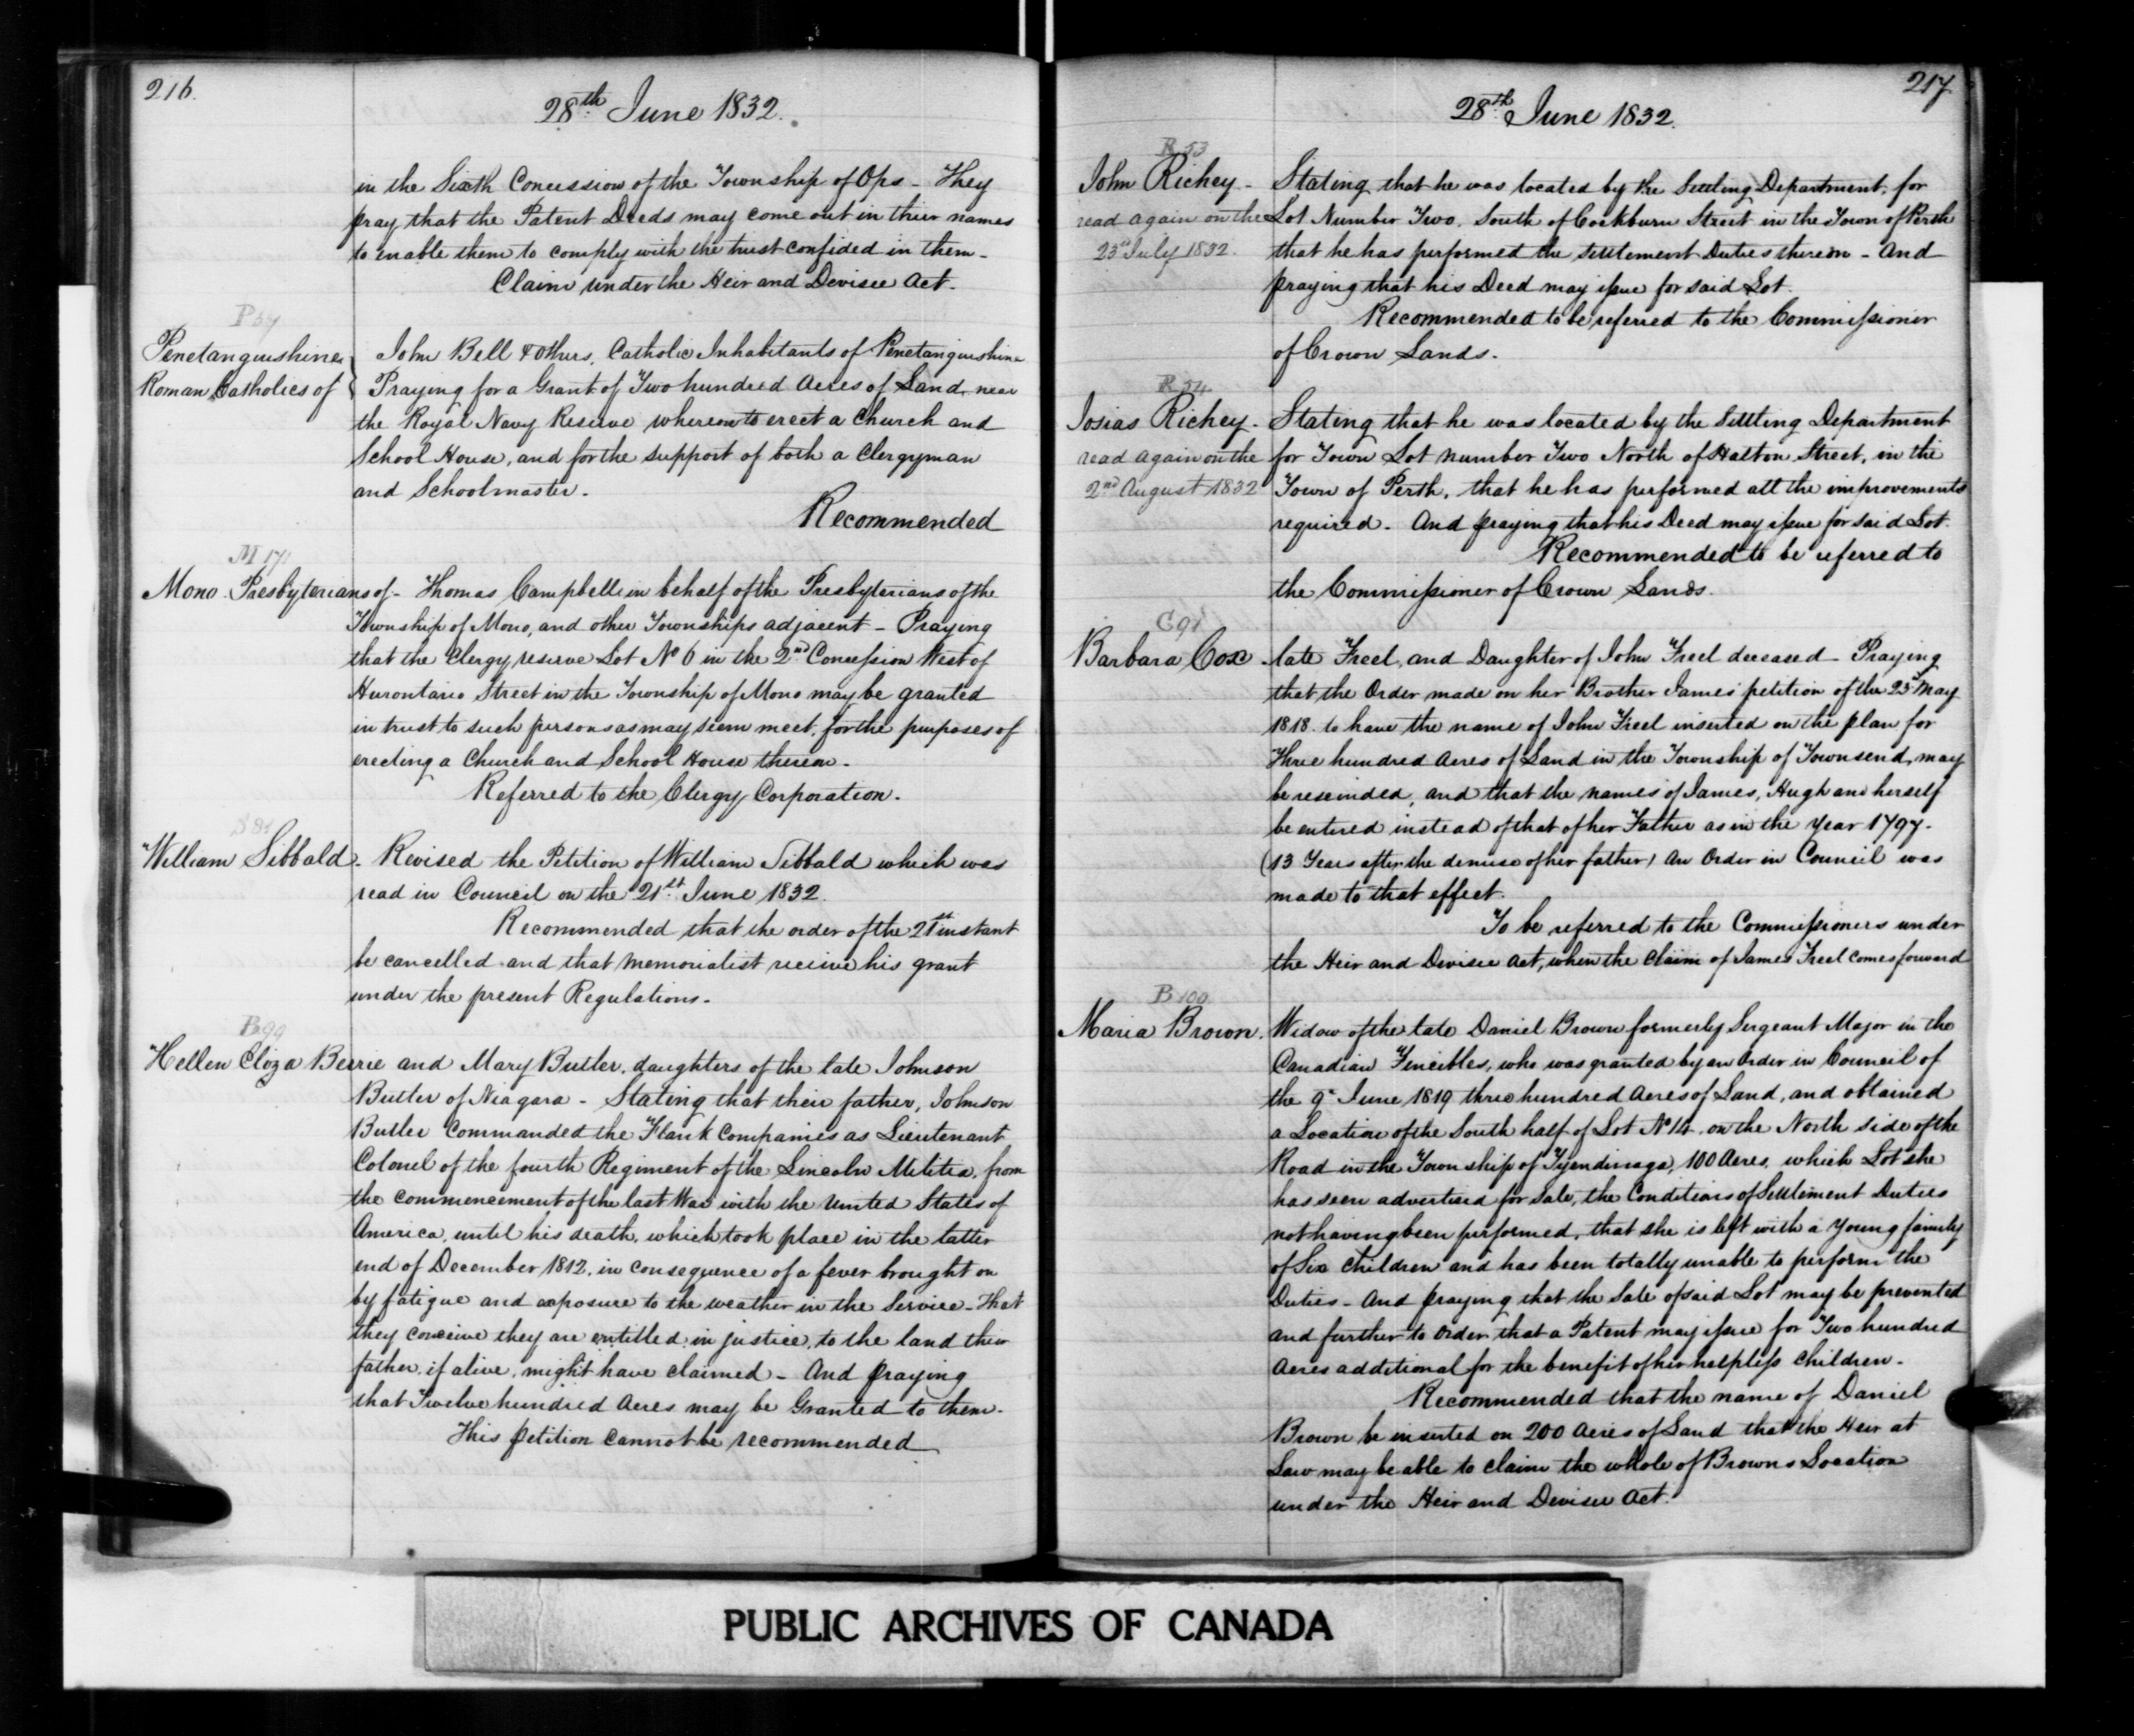 216.
28th June 1832.
in the Sixth Concession of the Township of Ops - They
pray that the Patent Deeds may come out in thier names
to enable them to comply with the trust confided in them -
Claim under the Heir and Devisee Act.
P 57
Penetanguishine
Roman Catholics of
John Bell & Others, Catholic Inhabitants of Penetanguishine
Praying for a Grant of Two hundred Acres of Land, near
the Royal Navy Reserve whereon to erect a Church and
School House, and for the support of both a Clergyman
and Schoolmaster.
Recommended
M 171
Mono. Presbyterians of - Thomas Campbell in behalf of the Presbyterians of the
Township of Mono, and other Townships adjacent - Praying
that the Clergy reserve Lot No 6 in the 2nd Concession West of
Hurontario Street in the Township of Mono may be granted
in trust to such persons as may seem meet, for the purposes of
erecting a Church and School House thereon.
Referred to the Clergy Corporation.
William Sibbald. Revised the Petition of William Sibbald which was
read in Council on the 21st June 1832.
Recommended that the order of the 21st instant
be cancelled and that Memorialist receive his grant
under the present Regulations.
B 99
Hellen Eliza Berrie and Mary Butler, daughters of the late Johnson
Butler of Niagara - Stating that their father, Johnson
Butler Commanded the Flank Companies as Lieutenant
Colonel of the fourth Regiment of the Lincoln Militia, from
the commencement of the last War with the United States of
America, until his death, which took place in the latter
end of December 1812, in consequence of a fever brought on
by fatigue and exposure to the weather in the Service - That
they conceive they are entitled in justice, to the land their
father, if alive, might have claimed - And praying
that Twelve hundred Acres may be Granted to them.
This petition cannot be recommended
217
28th June 1832.
R 53
John Richey -
read again on the
23rd July 1832.
Stating that he was located by the Settling Department, for
Lot Number Two, South of Cockburn Street in the Town of Perth
that he has performed the settlement Duties thereon - And
praying that his Deed may issue for said Lot.
Recommended to be referred to the Commissioner
of Crown Lands.
R 54
Josias Richey.
read again on the
2nd August 1832
Stating that he was located by the Settling Department
for Town Lot number Two North of Halton Street, in the
Town of Perth, that he has performed all the improvements
required. And praying that his Deed may issue for said Lot.
Recommended to be referred to
the Commissioner of Crown Lands.
C 91
Barbara Cox - late Freel, and Daughter of John Freel deceased - Praying
that the Order made on her Brother James' petition of the 23rd May
1818. to have the name of John Freel inserted on the plan for
Three hundred Acres of Land in the Township of Townsend, may
be rescinded, and that the names of James, Hugh and herself
be entered instead of that of her Father as in the Year 1797.
(13 Years after the demise of her father) An Order in Council was
made to that effect.
To be referred to the Commissioners under
the Heir and Devisee Act, when the Claim of James Freel comes forward
B 100
Maria Brown. Widow of the late Daniel Brown formerly Sergeant Major in the
Canadian Fencibles, who was granted by an Order in Council of
the 9th June 1819 three hundred Acres of Land, and obtained
a Location of the South half of Lot No 14. on the North side of the
Road in the Township of Tyendinaga, 100 Acres, which Lot she
has seen advertised for Sale, the Conditions of Settlement Duties
not having been performed, that she is left with a Young family
of Six Children and has been totally unable to perform the
Duties - And praying that the Sale of said Lot may be prevented
and further to Order that a Patent may issue for Two hundred
Acres additional for the benefit of her helpless Children.
Recommended that the name of Daniel
Brown be inserted on 200 Acres of Land that the Heir at
Law may be able to claim the whole of Browns Location
under the Heir and Devisee Act.
PUBLIC ARCHIVES OF CANADA